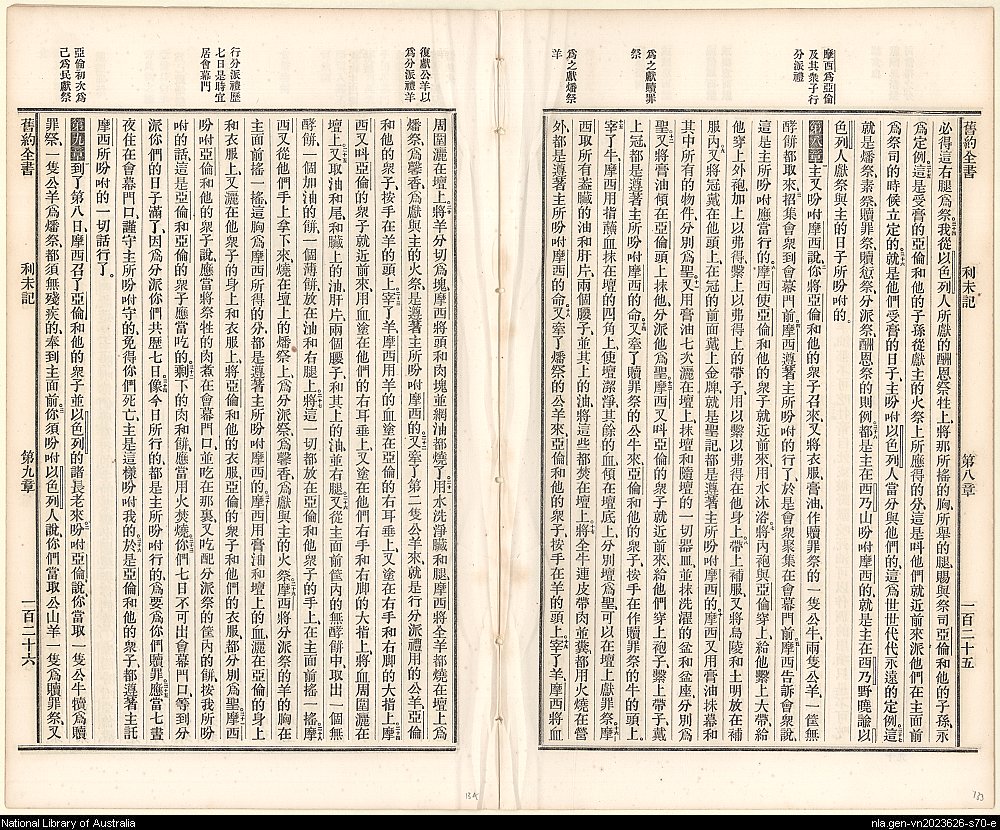 舊約全書 利未記 第八章 一百二十五
摩西為亞倫
及其衆子行
分派禮
為之獻贖罪
祭
為之獻燔祭
羊
必得這右腿為祭我從以色列人所獻的酬恩祭牲上將那所搖的胸所舉的腿賜與祭司亞倫和他的子孫永
為定例這是受膏的亞倫和他的子孫從獻主的火祭上所應得的分這是叫他們就近前來派他們在主面前
為祭司的時候立定的就是他們受膏的日子主吩咐以色列人當分與他們的這為世世代代永遠的定例這
就是燔祭素祭贖罪祭贖愆祭分派祭酬恩祭的則例都是主在西乃山吩咐摩西的就是主在西乃野曉諭以
色列人獻祭與主的日子所吩咐的
第八章主又吩咐摩西說你將亞倫和他的衆子召來又將衣服膏油作贖罪祭的一隻公牛兩隻公羊一筐無
酵餅都取來招集會衆到會幕門前摩西遵著主所吩咐的行了於是會衆聚集在會幕門前摩西告訴會衆說
這是主所吩咐應當行的摩西使亞倫和他的衆子就近前來用水沐浴將內袍與亞倫穿上給他繫上大帶給
他穿上外袍加上以弗得繫上以弗得上的帶子用以繫以弗得在他身上帶上補服又將烏陵和土明放在補
服內又將冠戴在他頭上在冠的前面戴上金牌就是聖記都是遵著主所吩咐摩西的摩西又用膏油抹幕和
其中所有的物件分別為聖又用膏油七次灑在壇上抹壇和隨壇的一切器皿並抹洗濯的盆和盆座分別為
聖又將膏油傾在亞倫頭上抹他分派他為聖摩西又叫亞倫的衆子就近前來給他們穿上袍子繫上帶子戴
上冠都是遵著主所吩咐摩西的命又牽了贖罪祭的公牛來亞倫和他的衆子按手在作贖罪祭的牛的頭上
宰了牛摩西用指蘸血抹在壇的四角上使壇潔淨其餘的血傾在壇底上分別壇為聖可以在壇上獻罪祭摩
西取所有蓋臟的油和肝片兩個腰子並其上的油將這些都焚在壇上將全牛連皮帶肉並糞都用火燒在營
外都是遵著主所吩咐摩西的命又牽了燔祭的公羊來亞倫和他的衆子按手在羊的頭上宰了羊摩西將血
復獻公羊以
為分派禮羊
行分派禮歷
七日是時宜
居會幕門
亞倫初次為
己為民獻祭
周圍灑在壇上將羊分切為塊摩西將頭和肉塊並網油都燒了用水洗淨臟和腿摩西將全羊都燒在壇上為
燔祭為馨香為獻與主的火祭是遵著主所吩咐摩西的又牽了第二隻公羊來就是行分派禮用的公羊亞倫
和他的衆子按手在羊的頭上宰了羊摩西用羊的血塗在亞倫的右耳垂上又塗在右手和右脚的大指上摩
西又叫亞倫的衆子就近前來用血塗在他們的右耳垂上又塗在他們右手和右脚的大指上將血周圍灑在
壇上又取油和尾和臟上的油肝片兩個腰子和其上的油並右腿又從主面前筐內的無酵餅中取出一個無
酵餅一個加油的餅一個薄餅放在油和右腿上將這一切都放在亞倫和他衆子的手上在主面前搖一搖摩
西又從他們手上拿下來燒在壇上的燔祭上為分派祭為馨香為獻與主的火祭摩西將分派祭的羊的胸在
主面前搖一搖這胸為摩西所得的分都是遵著主所吩咐摩西的摩西用膏油和壇上的血灑在亞倫的身上
和衣服上又灑在他衆子的身上和衣服上將亞倫和他的衣服亞倫的衆子和他們的衣服都分別為聖摩西
吩咐亞倫和他的衆子說應當將祭牲的肉煮在會幕門口並吃在那裏又吃配分派祭的筐內的餅按我所吩
咐的話這是亞倫和亞倫的衆子應當吃的剩下的肉和餅應當用火焚燒你們七日不可出會幕門口等到分
派你們的日子滿了因為分派你們共歷七日像今日所行的都是主所吩咐行的為要為你們贖罪應當七晝
夜住在會幕門口謹守主所吩咐守的免得你們死亡主是這樣吩咐我的於是亞倫和他的衆子都遵著主託
摩西所吩咐的一切話行了
第九章到了第八日摩西召了亞倫和他的衆子並以色列的諸長老來吩咐亞倫說你當取一隻公牛犢為贖
罪祭一隻公羊為燔祭都須無殘疾的奉到主面前你須吩咐以色列人說你們當取公山羊一隻為贖罪祭又
舊約全書 利未記 第九章 一百二十六
National Library of Australia
nla.gen-vn2023626-s70-e